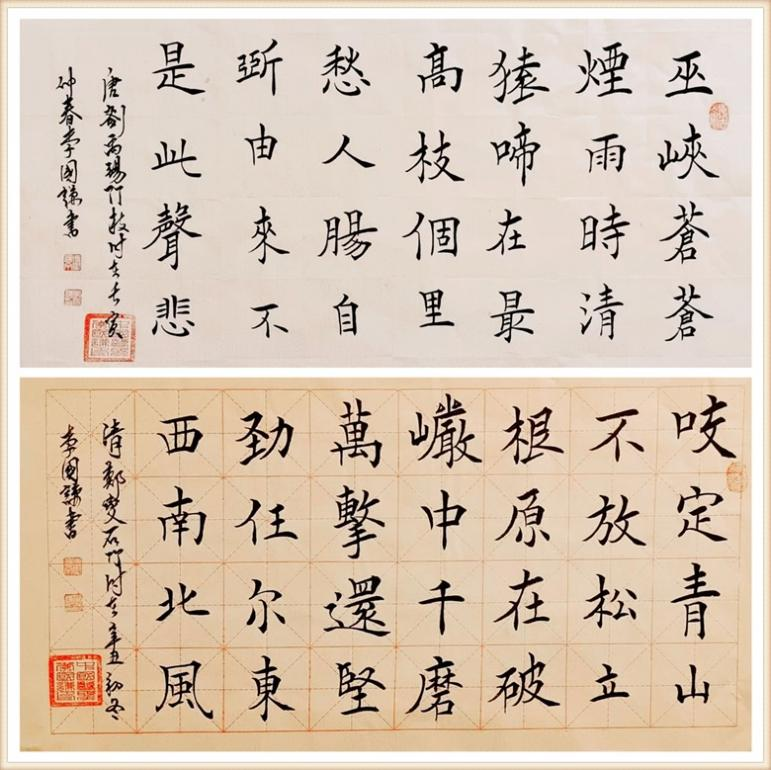 巫峽蒼蒼
煙雨時清
猿啼在最
高枝個里
愁人腸自
斷由來不
是此聲悲
唐劉禹錫竹枝寅
仲春李國謙書
咬定青山
不放松立
根原在破
巗中千磨
萬擊還堅
勁任尔東
西南北風
清鄭燮石竹辛丑初冬
李國謙書